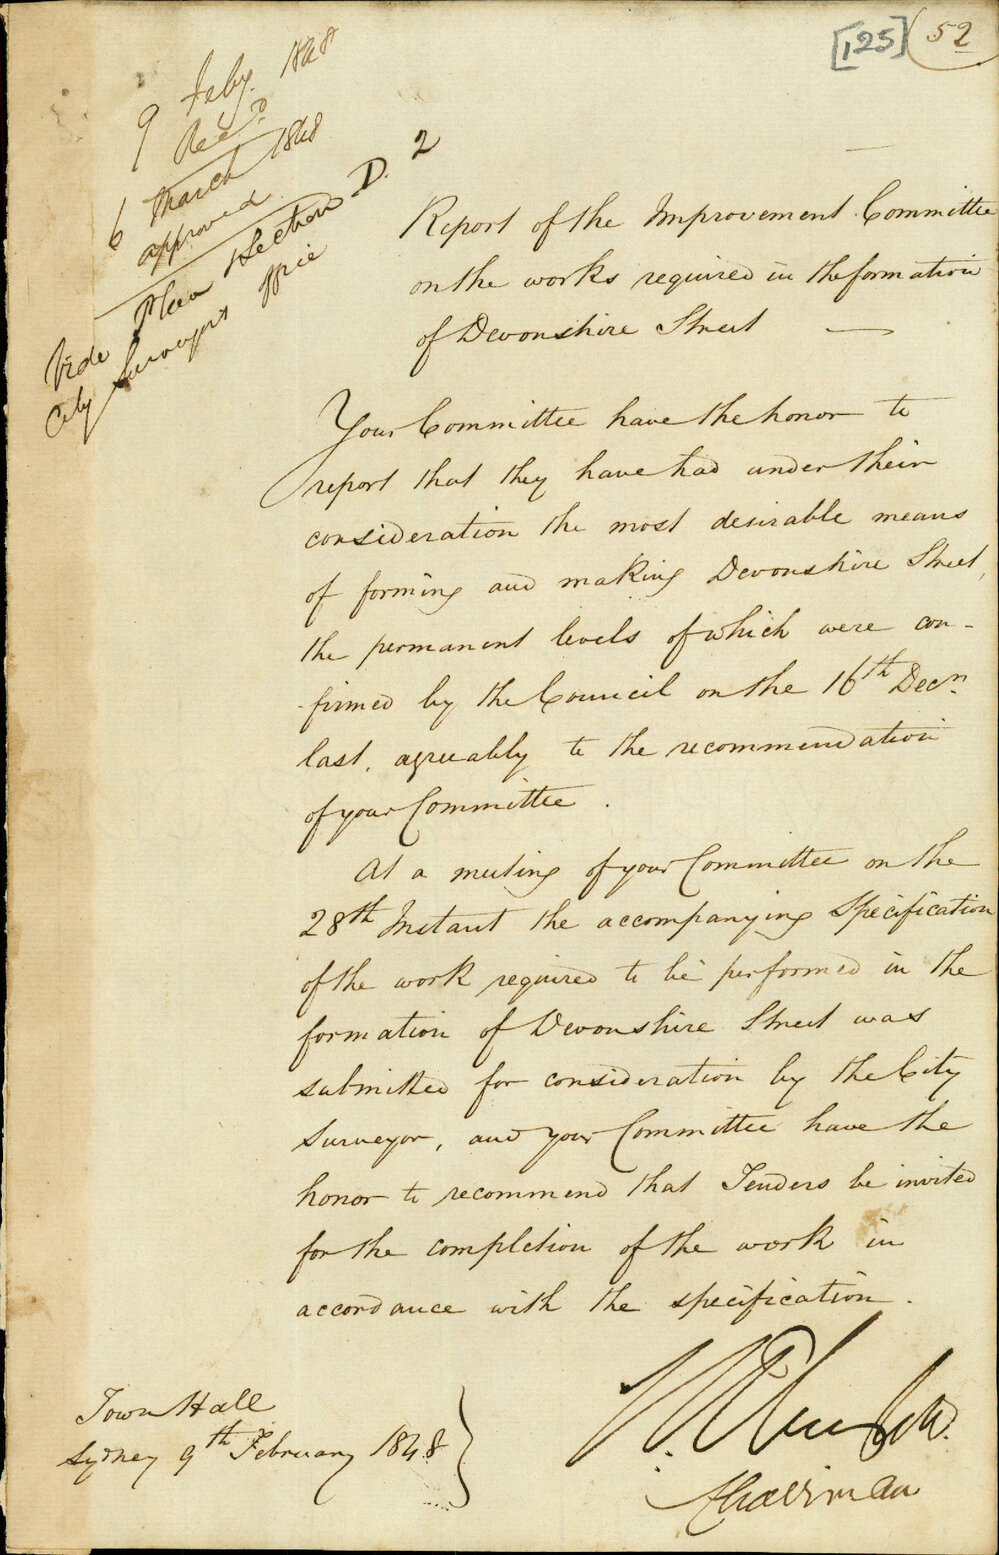 [125] 52
9 Feby. 1848
Recd.
6 March 1848
approved
Vide Plan Section D. 2
City Surveyors Office
Report of the Improvement Committee
on the works required in the formation
of Devonshire Street —
Your Committee have the honor to
report that they have had under their
consideration the most desirable means
of forming and making Devonshire Street,
the permanent levels of which were con-
-firmed by the Council on the 16th Decr.
last, agreeably to the recommendation
of your Committee.
At a meeting of your Committee on the
28th Instant the accompanying Specification
of the work required to be performed in the
formation of Devonshire Street was
submitted for consideration by the City
Surveyor, and your Committee have the
honor to recommend that Tenders be invited
for the completion of the work in
accordance with the specification.
Town Hall
Sydney 9th February 1848
Chairman